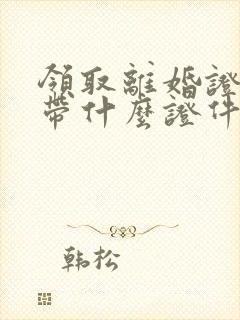 領取離婚證
帶什麼證件
韩松